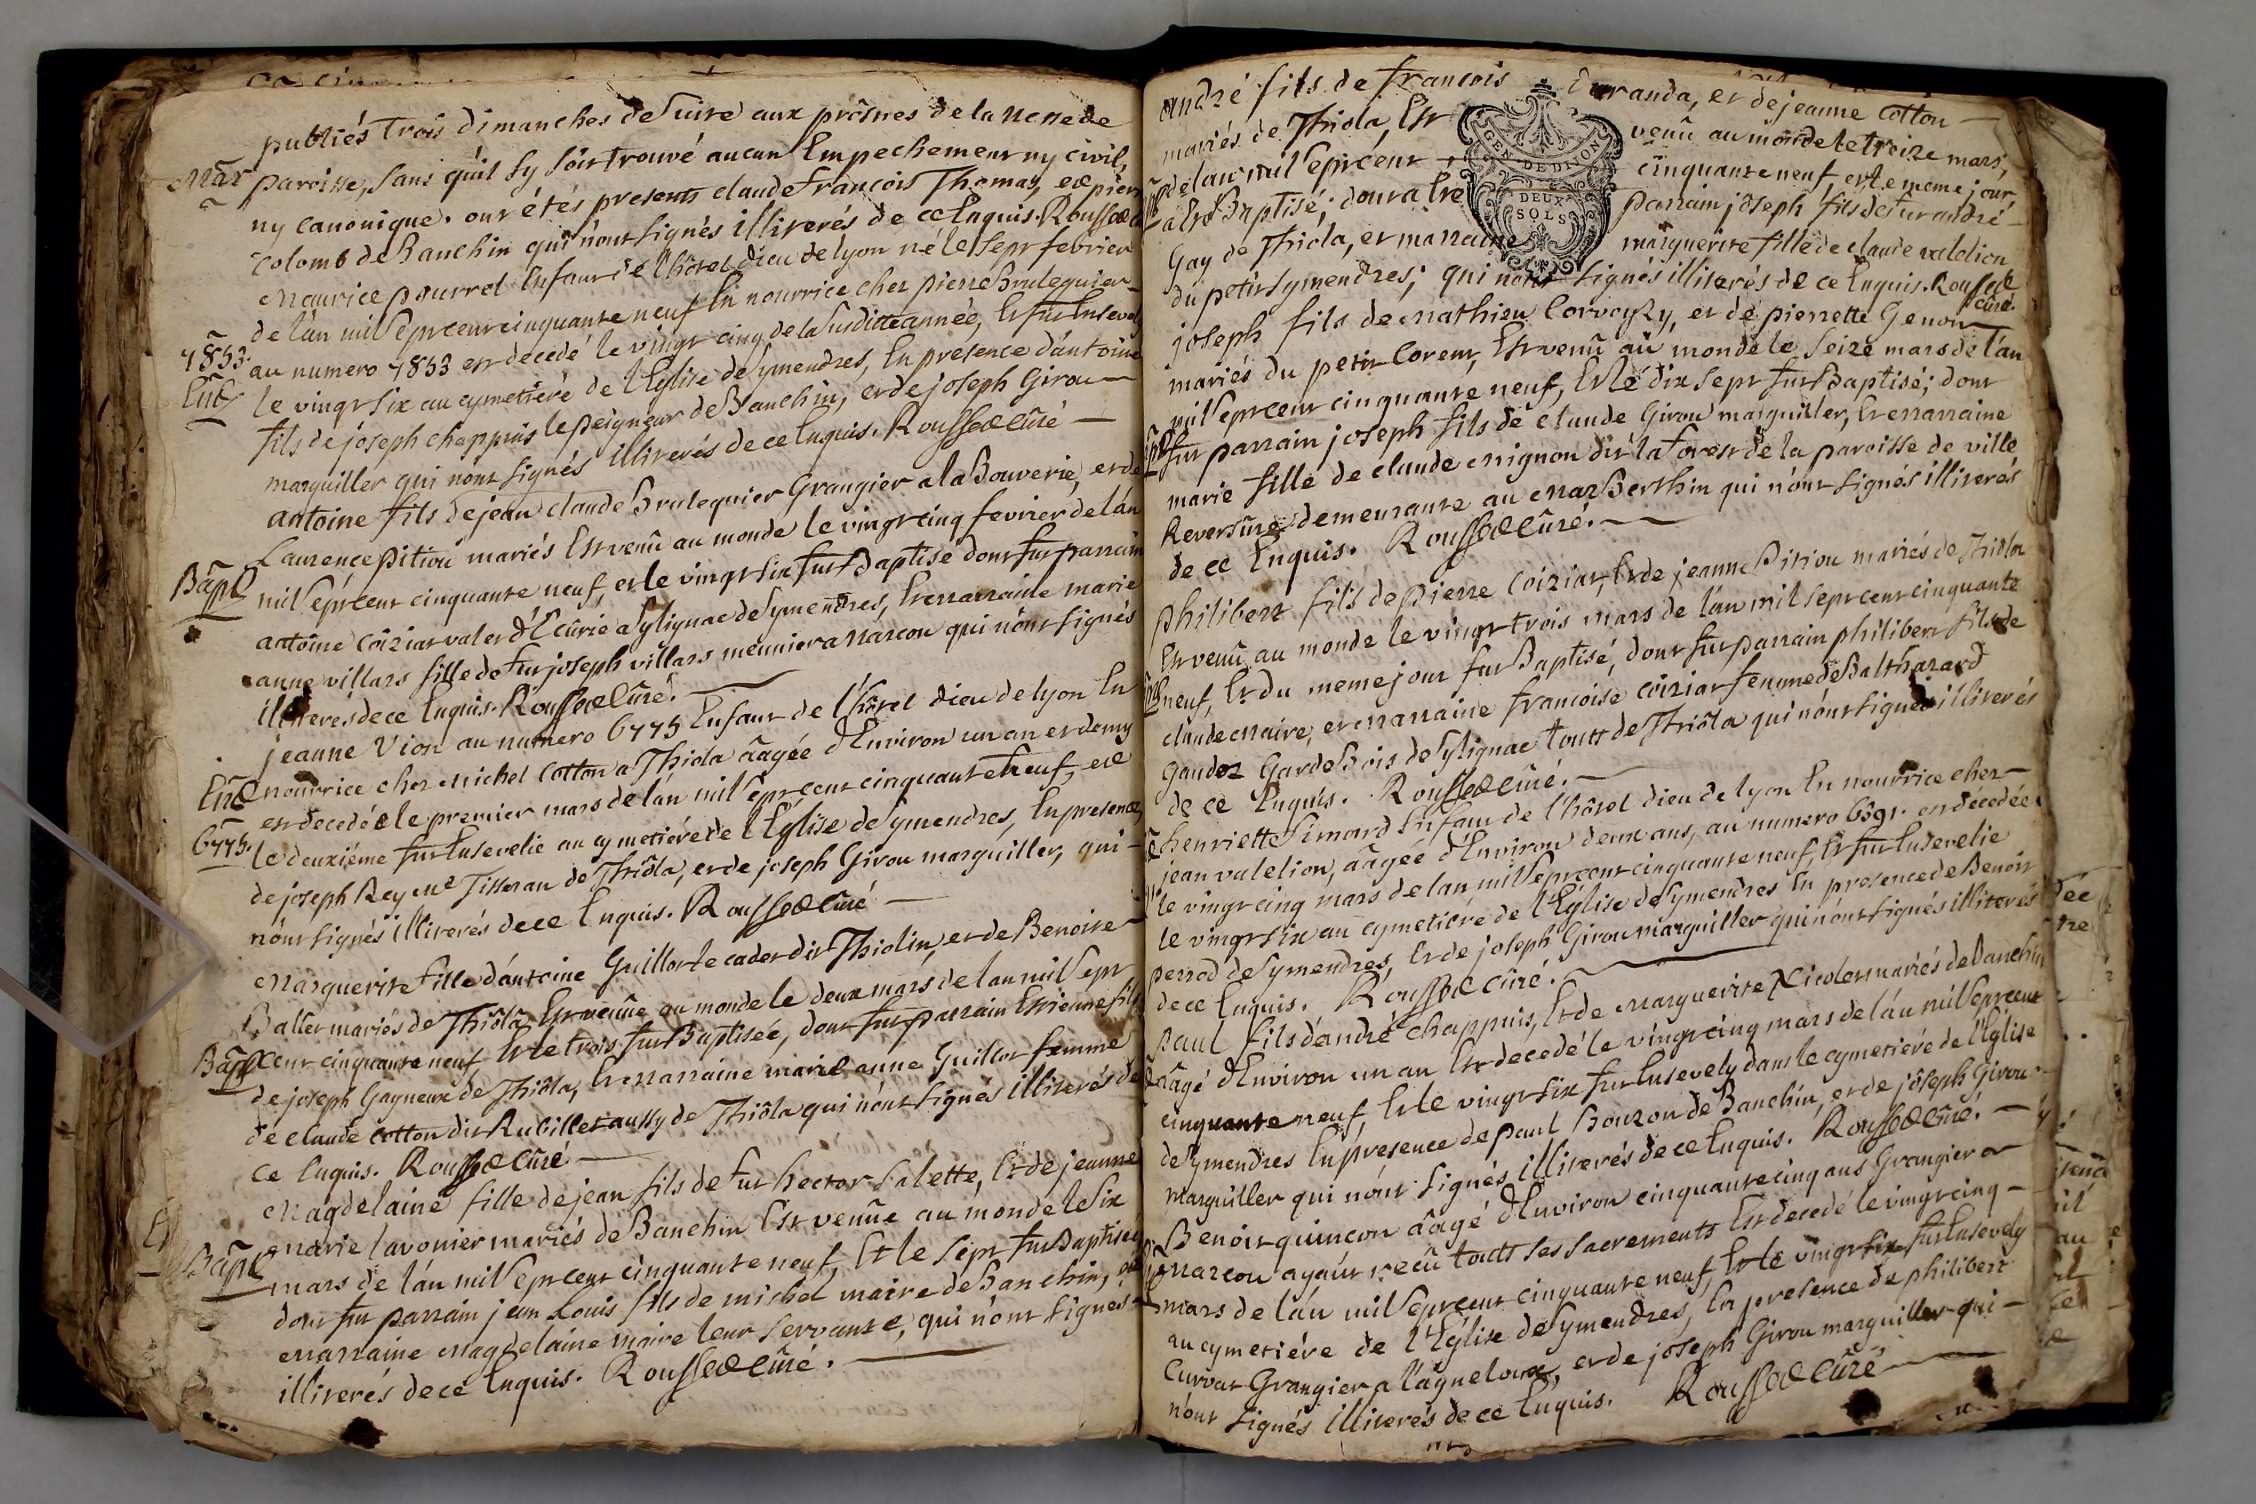 publiés trois dimanches de suite aux prônes de la messe de
Mar paroisse, sans qu'il sy soit trouvé aucun Empechement ny civil,
ny canonique. ont étés presents claude francois Thomas, et pierre
colomb de Banchin qui n'ont signés illiterés de ce Enquis. Rousset
Maurice pourret Enfant de l'hôtel dieu de lyon né le sept febvrier
de l'an mil sept cent cinquante neuf En nourrice chez pierre Brulequier
7853. au numero 7853 est decedé le vingt cinq de la susditte année, Et fut Ensevely
Ent le vingt six au cymetiére de l'Eglise de Symendres, En presence d'antoine
fils de joseph chappuis le peigneur de Banchin, et de joseph Girou
marguiller qui n'ont signés illiterés de ce Enquis. Rousset Curé
antoine fils de jean claude Brulequier Grangier a la Bouverie, et de
Laurence pitiou mariés Est venû au monde le vingt cinq fevrier de l'an
Bapt mil sept cent cinquante neuf, et le vingt six fut Baptisé dont fut parrain
antoine coiziat valet d'Ecurie a Sylignac de Symendres, Et marraine marie
anne villars fille de fut joseph villars meunier a narcou qui n'ont signés
illiterés de ce Enquis. Rousset Curé.
jeanne Vion au numero 6775 Enfant de l'hôtel dieu de lyon En
Ent nourrice chez michel cotton a Thiola âagée d'Environ un an et demy
est decedée le premier mars de l'an mil sept cent cinquante neuf, et
6775. le deuxiéme fut Ensevelie au cymetiére de l'Eglise de Symendres, En presence
de joseph Rey me Tisseran de Thiôla, et de joseph Girou marguiller, qui
n'ont signés illiterés de ce Enquis. Rousset Curé
Marguerite fille d'antoine Guillot le cadet dit Thiolin, et de Benoite
Ballet mariés de Thiôla Est venûe au monde le deux mars de l'an mil sept
Bapt cent cinquante neuf, Et le trois fut Baptisée, dont fut parrain Etienne fils
de joseph Gagneux de Thiôla, Et marraine marie anne Guillot femme
de claude cotton dit Rubillet aussy de Thiôla qui n'ont signés illiterés de
ce Enquis. Rousset Curé
Magdelaine fille de jean fils de fut hector Salette, Et de jeanne
marie lavonier mariés de Banchin Est venûe au monde le six
Bapt mars de l'an mil sept cent cinquante neuf, Et le sept fut Baptisée
dont fut parrain jean Louis fils de michel maire de Banchin, et
marraine Magdelaine maire leur servante, qui n'ont signés
illiterés de ce Enquis. Rousset Curé.
andré fils de francois Duranda, et de jeanne cotton
mariés de Thiola, Est venû au monde le treize mars,
de l'an mil sept cent cinquante neuf, et le meme jour,
a Eté Baptisé; dont a Eté parrain jôseph fils de fut andré
Gay de Thiôla, et marraine marguerite fille de claude valelion
du petit Symendres; qui n'ont signés illiterés de ce Enquis. Rousset
curé.
GEN. DE DIJON
DEUX
SOLS
joseph fils de mathieu Corvoysy, et de pierrette Genou
mariés du petit Corent, Est venû au monde le seize mars de l'an
mil sept cent cinquante neuf, Et le dix sept fut Baptisé; dont
fut parrain joseph fils de claude Girou marguiller, Et marraine
marie fille de claude mignon dit la forest de la paroisse de ville
Reversûre demeurante au mas Berthin qui n'ont signés illiterés
de ce Enquis. Rousset Curé.
philibert fils de pierre coiziat, Et de jeanne Pitiou mariés de Thiôla
Est venû au monde le vingt trois mars de l'an mil sept cent cinquante
neuf, Et du meme jour fut Baptisé, dont fut parrain philibert fils de
claude maire, et marraine francoise coiziat femme de Balthazard
Gaudet Garde Bois de Sylignac touts de Thiôla qui n'ont signés illiterés
de ce Enquis. Rousset Curé.
henriette Simard Enfant de l'hôtel dieu de lyon En nourrice chez
jean valelion, âagée d'Environ deux ans, au numero 6391. est décedée
le vingt cinq mars de l'an mil sept cent cinquante neuf, Et fut Ensevelie
le vingt six au cymetiére de l'Eglise de Symendres En presence de Benoit
perrod de Symendres, Et de joseph Girou marguiller qui n'ont signés illiterés
de ce Enquis. Rousset Curé.
Paul fils d'andré chappuis, Et de marguerite Nicolet mariés de Banchin
âagé d'Environ un an Est decedé le vingt cinq mars de l'an mil sept cent
cinquante neuf, Et le vingt six fut Ensevely dans le cymetiére de l'Eglise
de Symendres En presence de paul Bouzon de Banchin, et de jôseph Girou
marguiller qui n'ont signés illiterés de ce Enquis. Rousset Curé.
Benoit quincon âagé d'Environ cinquante cinq ans Grangier a
Narcou ayant reçû touts ses sacrements Est decedé le vingt cinq
mars de l'an mil sept cent cinquante neuf, Et le vingt six fut Ensevely
au cymetiére de l'Eglise de Symendres, En presence de philibert
Curvat Grangier a l'âgneloux, et de joseph Girou marguiller qui
n'ont signés illiterés de ce Enquis. Rousset Curé